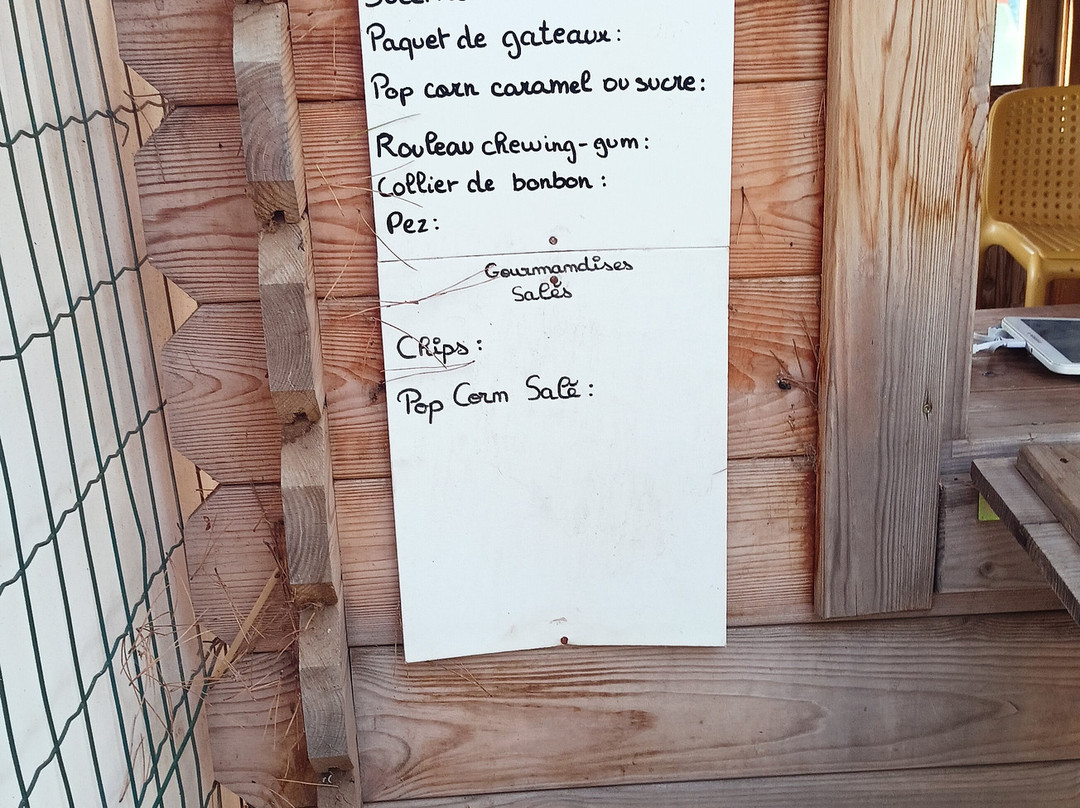 Paquet de gateaux:
Pop corn caramel ou sucre:
Rouleau chewing-gum:
Collier de bonbon:
Pez:
Gourmandises
Salés
Chips:
Pop Corn Salé: